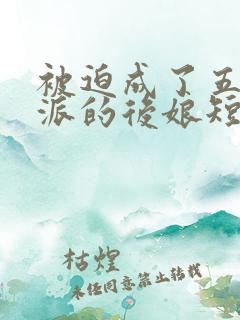 被迫成了五
派的後娘短
枯煌
未经同意禁止转载